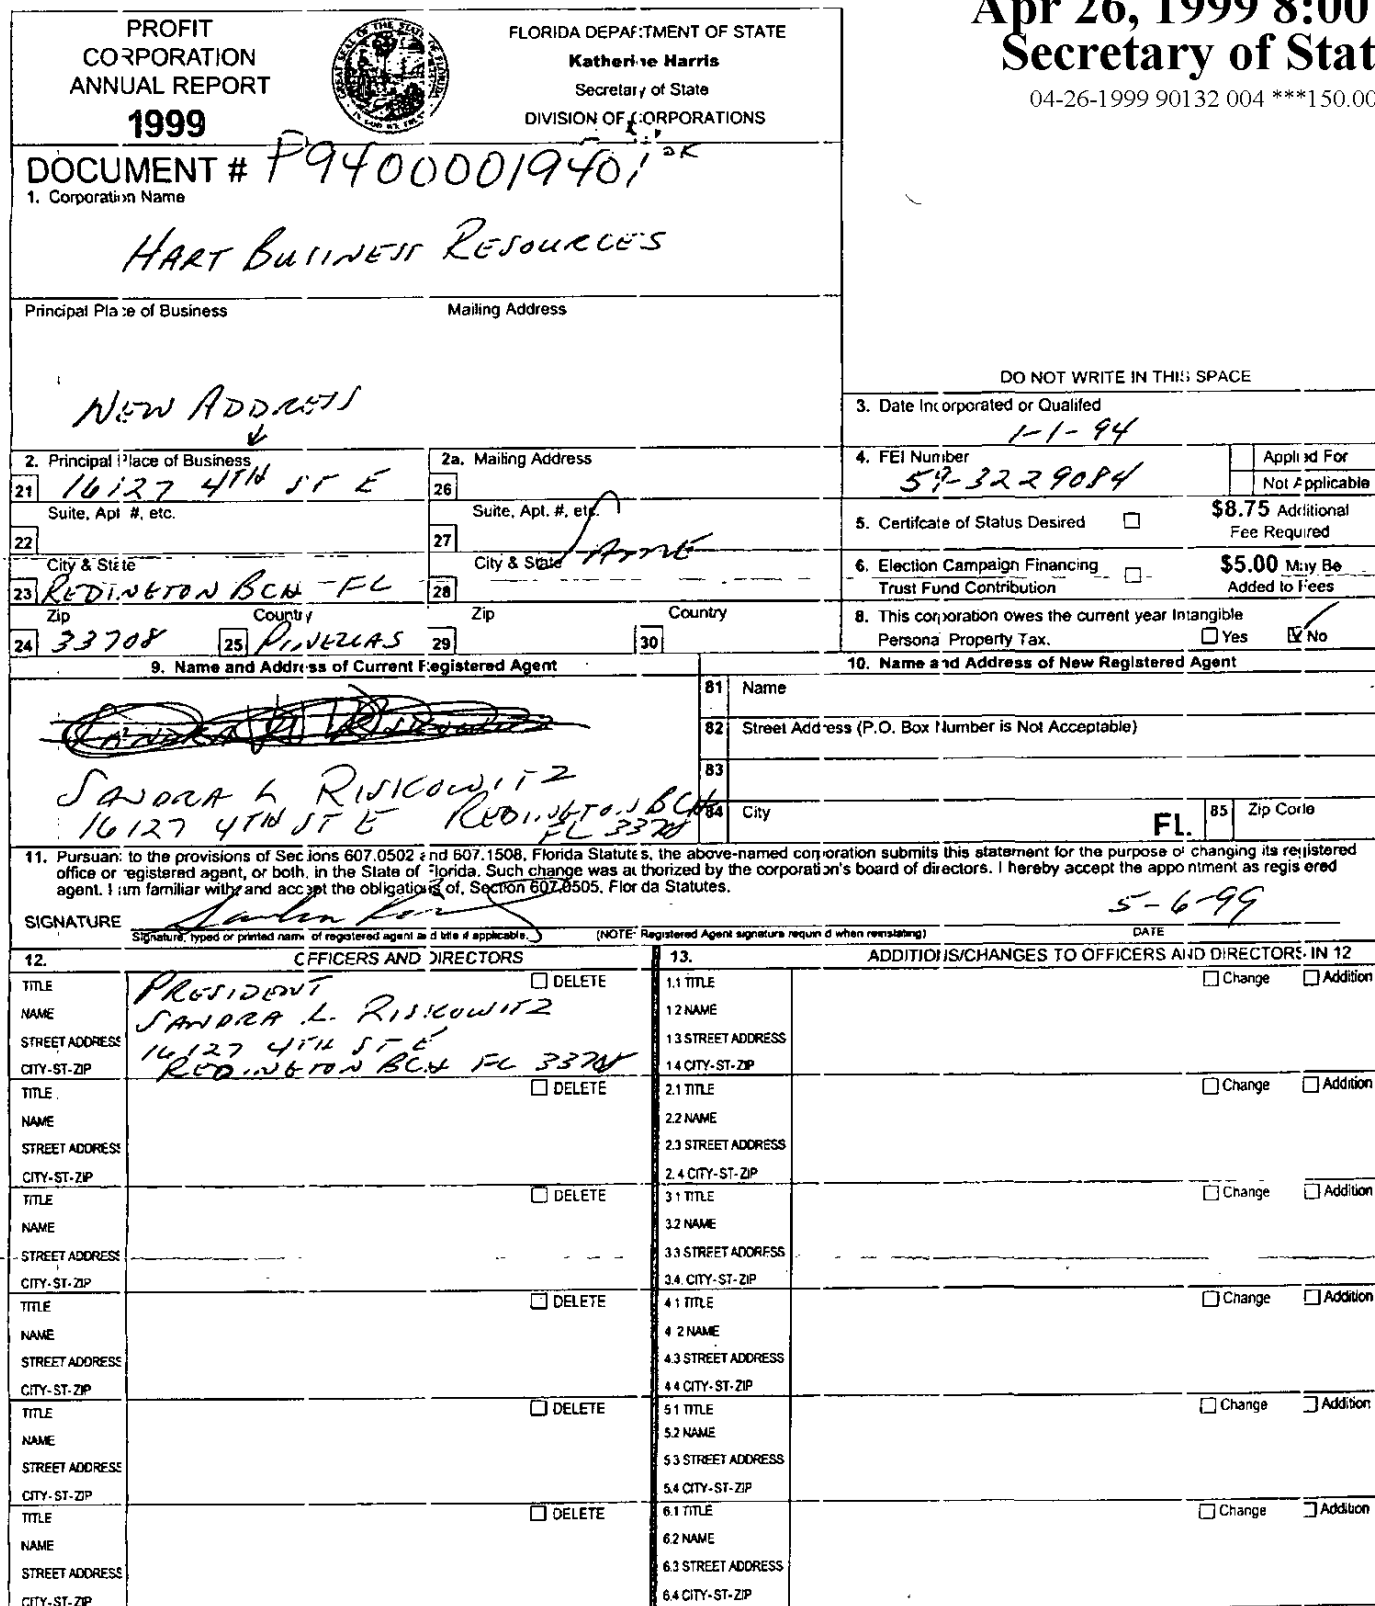 Apr 26, 1999 8:00
Secretary of Stat
04-26-1999 90132 004 ***150.00
PROFIT
CORPORATION
ANNUAL REPORT
1999
FLORIDA DEPARTMENT OF STATE
Katherine Harris
Secretary of State
DIVISION OF CORPORATIONS
DOCUMENT # P94000019401 OK
1. Corporation Name
HART BUSINESS RESOURCES
Principal Place of Business
Mailing Address
NEW ADDRESS
DO NOT WRITE IN THIS SPACE
3. Date Incorporated or Qualifed
1-1-94
2. Principal Place of Business
21 16127 4TH ST E
Suite, Apt. #, etc.
22
City & State
23 REDINGTON BCH - FL
Zip
24 33708
Country
25 PINELLAS
2a. Mailing Address
26
Suite, Apt. #, etc.
27
SAME
City & State
28
Zip
29
Country
30
4. FEI Number
59-3229084
Applied For
Not Applicable
5. Certifcate of Status Desired
$8.75 Additional
Fee Required
6. Election Campaign Financing
Trust Fund Contribution
$5.00 May Be
Added to Fees
8. This corporation owes the current year Intangible
Personal Property Tax. Yes No
9. Name and Address of Current Registered Agent
SANDRA L RISKOWITZ
16127 4TH ST E REDINGTON BCH
FL 33708
10. Name and Address of New Registered Agent
81 Name
82 Street Address (P.O. Box Number is Not Acceptable)
83
84 City
FL
85 Zip Code
11. Pursuant to the provisions of Sections 607.0502 and 607.1508, Florida Statutes, the above-named corporation submits this statement for the purpose of changing its registered
office or registered agent, or both, in the State of Florida. Such change was authorized by the corporation's board of directors. I hereby accept the appointment as registered
agent. I am familiar with, and accept the obligations of, Section 607.0505, Florida Statutes.
SIGNATURE
5-6-99
Signature, typed or printed name of registered agent and title if applicable.
(NOTE: Registered Agent signature required when reinstating)
DATE
12. OFFICERS AND DIRECTORS
TITLE PRESIDENT DELETE
NAME SANDRA L. RISKOWITZ
STREET ADDRESS 16127 4TH ST E
CITY-ST-ZIP REDINGTON BCH FL 33708
TITLE DELETE
NAME
STREET ADDRESS
CITY-ST-ZIP
TITLE DELETE
NAME
STREET ADDRESS
CITY-ST-ZIP
TITLE DELETE
NAME
STREET ADDRESS
CITY-ST-ZIP
TITLE DELETE
NAME
STREET ADDRESS
CITY-ST-ZIP
TITLE DELETE
NAME
STREET ADDRESS
CITY-ST-ZIP
13. ADDITIONS/CHANGES TO OFFICERS AND DIRECTORS IN 12
1.1 TITLE Change Addition
1.2 NAME
1.3 STREET ADDRESS
1.4 CITY-ST-ZIP
2.1 TITLE Change Addition
2.2 NAME
2.3 STREET ADDRESS
2.4 CITY-ST-ZIP
3.1 TITLE Change Addition
3.2 NAME
3.3 STREET ADDRESS
3.4. CITY-ST-ZIP
4.1 TITLE Change Addition
4.2 NAME
4.3 STREET ADDRESS
4.4 CITY-ST-ZIP
5.1 TITLE Change Addition
5.2 NAME
5.3 STREET ADDRESS
5.4 CITY-ST-ZIP
6.1 TITLE Change Addition
6.2 NAME
6.3 STREET ADDRESS
6.4 CITY-ST-ZIP